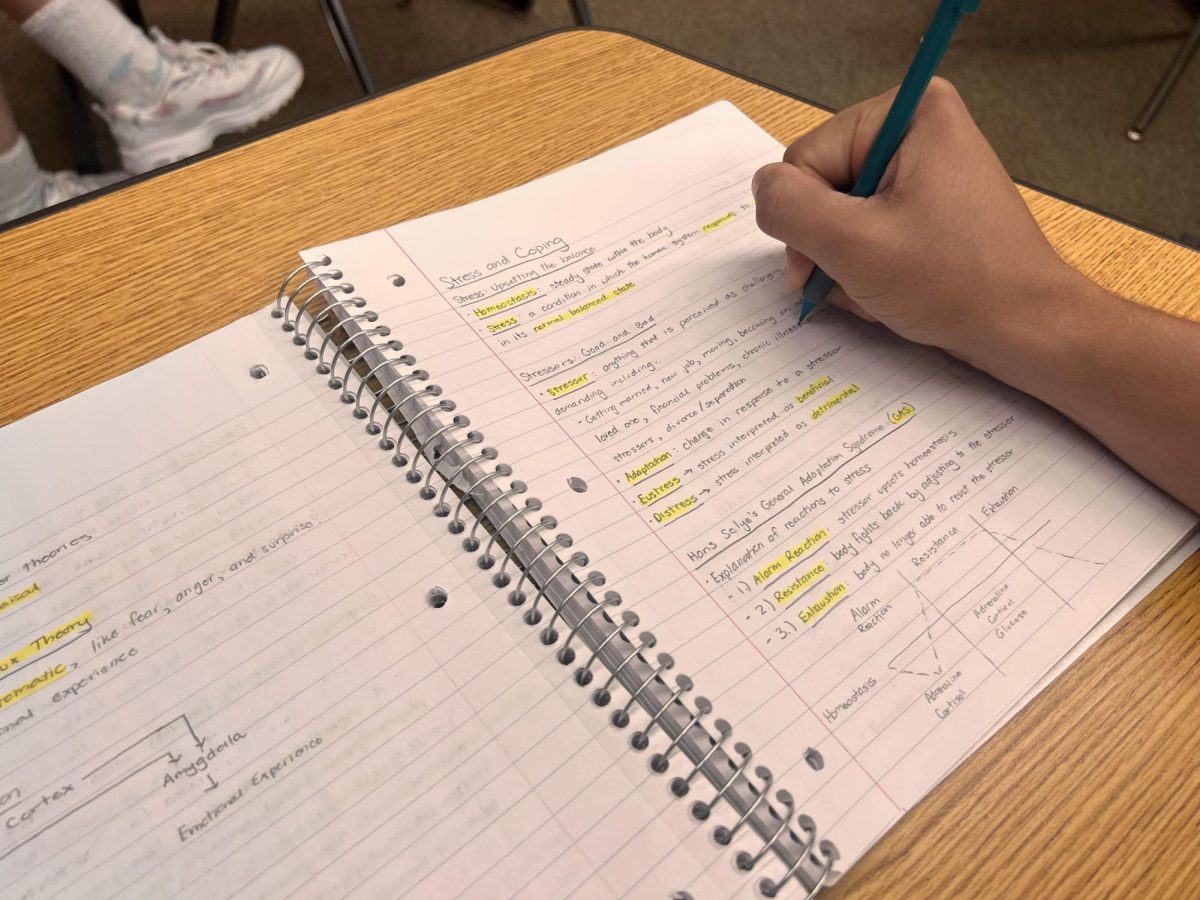 r theories
aisal
ux Theory
omatic, like fear, anger, and surprise.
onal experience
on
cortex
Amygdala
Emotional Experience
Stress and Coping
Stress: Upsetting the balance
• Homeostasis: steady state within the body
• Stress: a condition in which the human system responds to
in its normal balanced state
Stressors: Good and Bad
• Stressor: anything that is perceived as challenging
demanding including:
- Getting married, new job, moving, becoming an
loved one, financial problems, chronic illness
stressors, divorce/separation
• Adaptation: change in response to a stressor
• Eustress → stress interpreted as beneficial
• Distress → stress interpreted as detrimental
Hans Selye's General Adaptation Syndrome (GAS)
• Explanation of reactions to stress
- 1.) Alarm Reaction: stressor upsets homeostasis
- 2.) Resistance: body fights back by adjusting to the stressor
- 3.) Exhaustion: body no longer able to resist the stressor
Alarm
Reaction
Resistance
Exhaustion
Homeostasis
Adrenaline
Cortisol
Adrenaline
Cortisol
Glucose